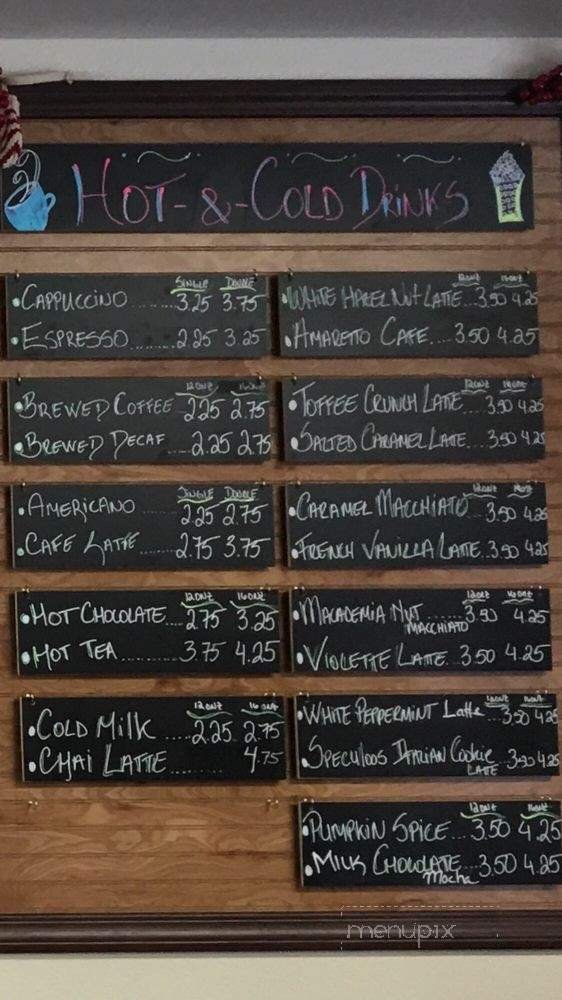 HOT-&-COLD DRINKS
SINGLE DOUBLE
CAPPUCCINO.........3.25 3.75
ESPRESSO.........2.25 3.25
12ONZ 16ONZ
BREWED COFFEE 2.25 2.75
BREWED DECAF.....2.25 2.75
SINGLE DOUBLE
AMERICANO........2.25 2.75
CAFE LATTE........2.75 3.75
12ONZ 16ONZ
HOT CHOCOLATE....2.75 3.25
HOT TEA............3.75 4.25
12ONZ 16ONZ
COLD MILK.....2.25 2.75
CHAI LATTE......... 4.75
12ONZ 16ONZ
WHITE HAZELNUT LATTE...3.50 4.25
AMARETTO CAFE....3.50 4.25
12ONZ 16ONZ
TOFFEE CRUNCH LATTE...3.50 4.25
SALTED CARAMEL LATTE...3.50 4.25
12ONZ 16ONZ
CARAMEL MACCHIATO...3.50 4.25
FRENCH VANILLA LATTE...3.50 4.25
12ONZ 16ONZ
MACADEMIA NUT.......3.50 4.25
MACCHIATO
VIOLETTE LATTE...3.50 4.25
12ONZ 16ONZ
WHITE PEPPERMINT Latte...3.50 4.25
SPECULOOS ITALIAN Cookie...3.50 4.25
LATTE
12ONZ 16ONZ
PUMPKIN SPICE...3.50 4.25
MILK CHOCOLATE...3.50 4.25
Mocha
menupix